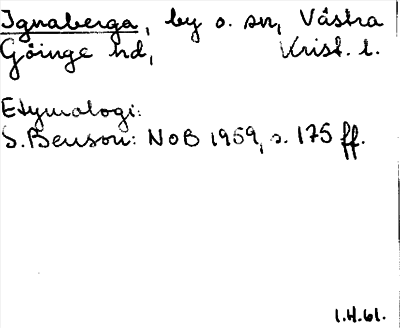 Ignaberga, by o. sn, Västra
Göinge hd, Krist. l.
Etymologi:
S. Benson: NoB 1959, s. 175 ff.
1.H.61.